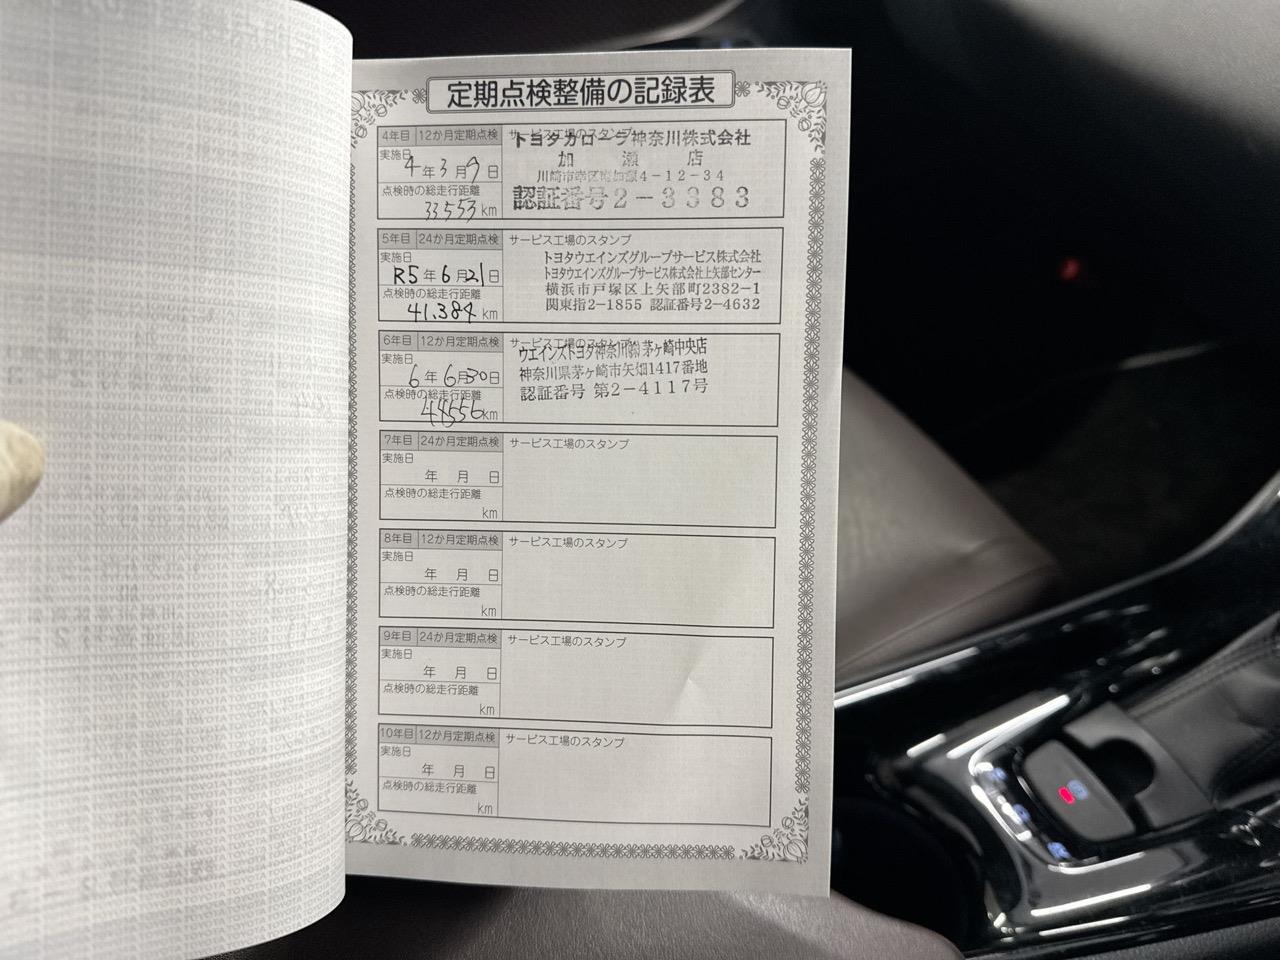 定期点検整備の記録表
4年目 12か月定期点検 サービス工場のスタンプ
実施日
4年3月9日
点検時の総走行距離
33553km
トヨタカローラ神奈川株式会社
加瀬店
川崎市幸区南加瀬4-12-34
認証番号2-3383
5年目 24か月定期点検 サービス工場のスタンプ
実施日
R5年6月21日
点検時の総走行距離
41,384km
トヨタウエインズグループサービス株式会社
トヨタウエインズグループサービス株式会社上矢部センター
横浜市戸塚区上矢部町2382-1
関東指2-1855 認証番号2-4632
6年目 12か月定期点検 サービス工場のスタンプ
実施日
6年6月30日
点検時の総走行距離
48556km
ウエインズトヨタ神奈川㈱茅ヶ崎中央店
神奈川県茅ヶ崎市矢畑1417番地
認証番号 第2-4117号
7年目 24か月定期点検 サービス工場のスタンプ
実施日
年 月 日
点検時の総走行距離
km
8年目 12か月定期点検 サービス工場のスタンプ
実施日
年 月 日
点検時の総走行距離
km
9年目 24か月定期点検 サービス工場のスタンプ
実施日
年 月 日
点検時の総走行距離
km
10年目 12か月定期点検 サービス工場のスタンプ
実施日
年 月 日
点検時の総走行距離
km